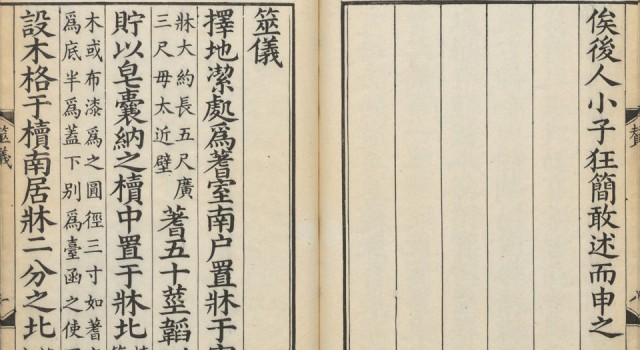 俟後人小子狂簡敢述而申之
筮儀
擇地潔處爲蓍室南户置牀于
牀大約長五尺廣
三尺毋太近壁
蓍五十莖韜
貯以皂囊納之櫝中置于牀北
木或布漆爲之圓徑三寸如蓍
爲底半爲蓋下别爲臺函之使
設木格于櫝南居牀二分之北
筮儀